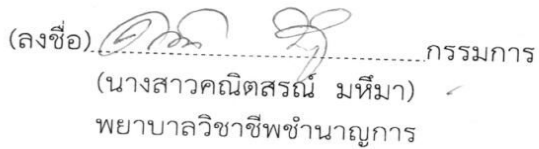 (ลงชื่อ)........................................กรรมการ
(นางสาวคณิตสรณ์ มหึมา)
พยาบาลวิชาชีพชำนาญการ